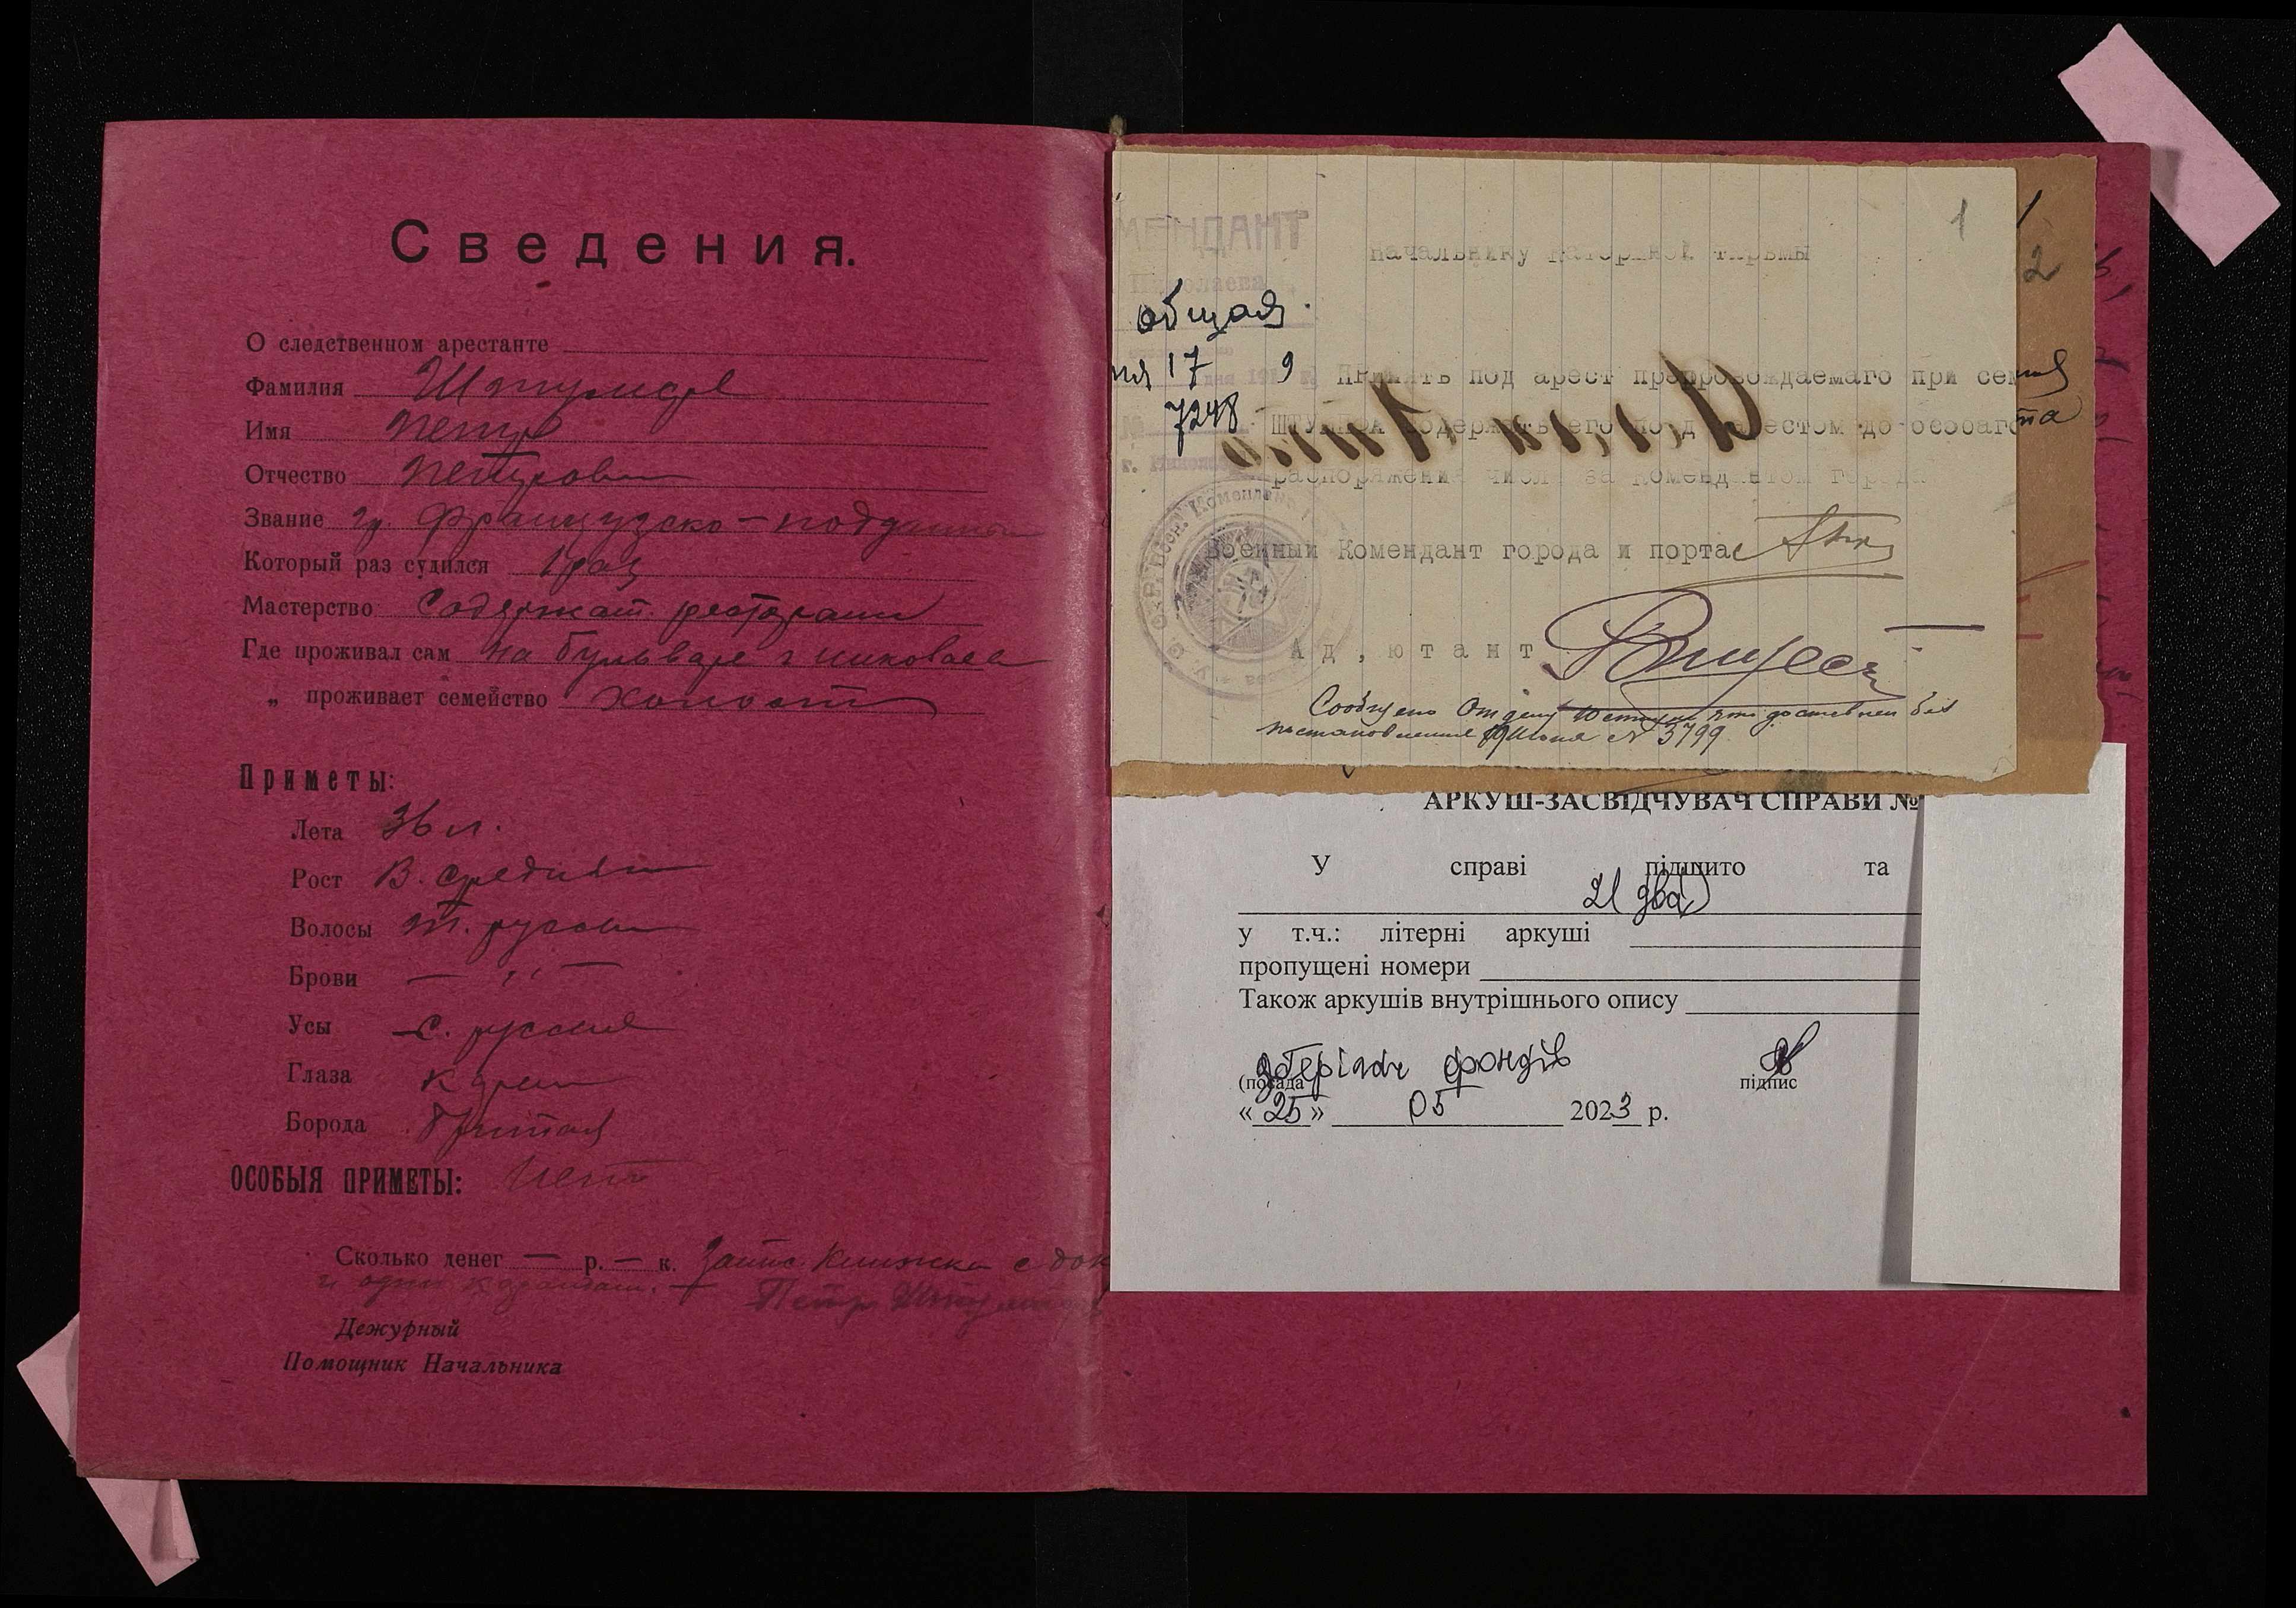 Сведения.
О следственном арестанте
Фамилия Штумпф
Имя Петр
Отчество Петрович
Звание гр. Французско-подданный
Который раз судился 1 раз
Мастерство Содержат. ресторана
Где проживал сам на бульваре г Николаев
„ проживает семейство холост
Приметы:
Лета 36 л.
Рост В. средний
Волосы т. русые
Брови — ,, —
Усы с. русые
Глаза карие
Борода бритая
ОСОБЫЯ ПРИМЕТЫ: нет
Сколько денег — р. — к. Запис Книжка с док
и один карандаш. Петр
Дежурный
Помощник Начальника
1
2
МЕНДАНТ
Николаева
Общая.
17 9
7248
Начальнику каторжной тюрьмы
Принять под арест препровождаемаго при сем
содержать его под арестом до особаго
распоряжения числ. за Комендантом города
Военный Комендант города и порта
Ад,ютант
Сообщено Отделу Юстиции что доставлен без
постановления 19 Июня № 3799
АРКУШ-ЗАСВІДЧУВАЧ СПРАВИ №
У справі підшито та
2 (два)
у т.ч.: літерні аркуші
пропущені номери
Також аркушів внутрішнього опису
зберігач фондів
(посада підпис
« 25 » 05 2023 р.